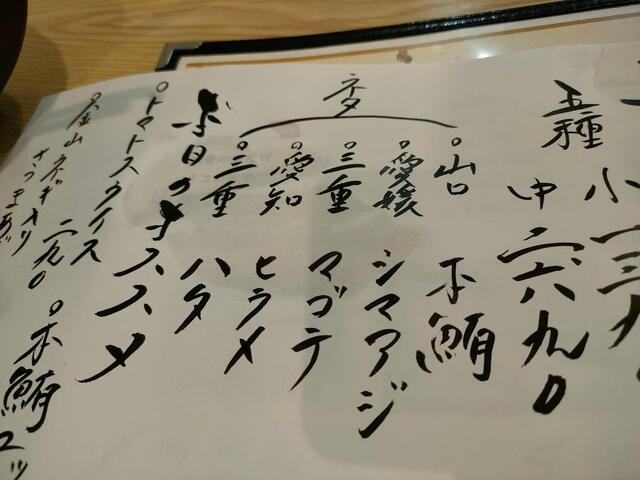 五種
小 一三九
中 二六九〇
ネタ
○山口 本鮪
○愛媛 シマアジ
○三重 マゴチ
○愛知 ヒラメ
○三重 ハタ
本日のオススメ
○トマトスライス
二九〇
○本鮪